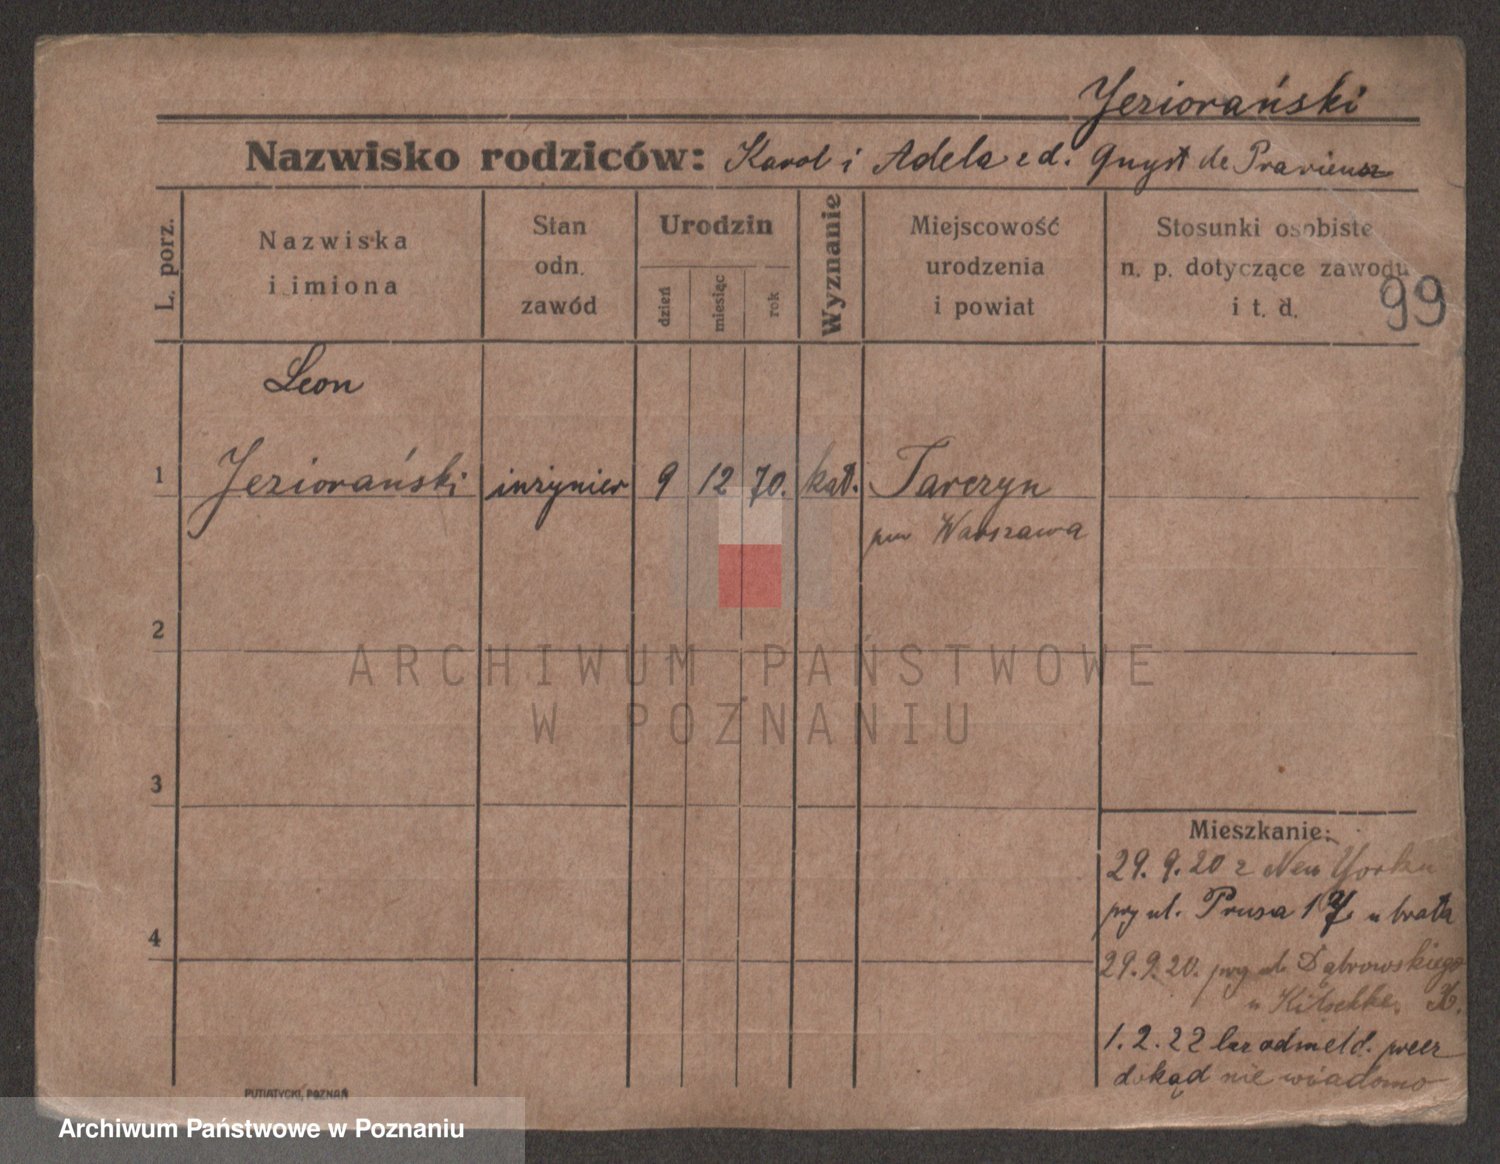 Jeziorański
Nazwisko rodziców: Karol i Adela z d. Gnyst de
L. porz.
Nazwiska
i imiona
Stan
odn.
zawód
Urodzin
dzień
miesiąc
rok
Wyznanie
Miejscowość
urodzenia
i powiat
Stosunki osobiste
n. p. dotyczące zawodu
i t. d.
99
Leon
1 Jeziorański inżynier 9 12 70. kat. Tarczyn
pow Warszawa
2
ARCHIWUM PAŃSTWOWE
W POZNANIU
3
Mieszkanie:
29. 9. 20 z New Yorku
przy ul. Prusa 17. u brata
4
29.9.20. przy ul. Dąbrowskiego
u
1. 2. 22 bez odmeld. precz
dokąd nie wiadomo
PUTIATYCKI, POZNAŃ
Archiwum Państwowe w Poznaniu